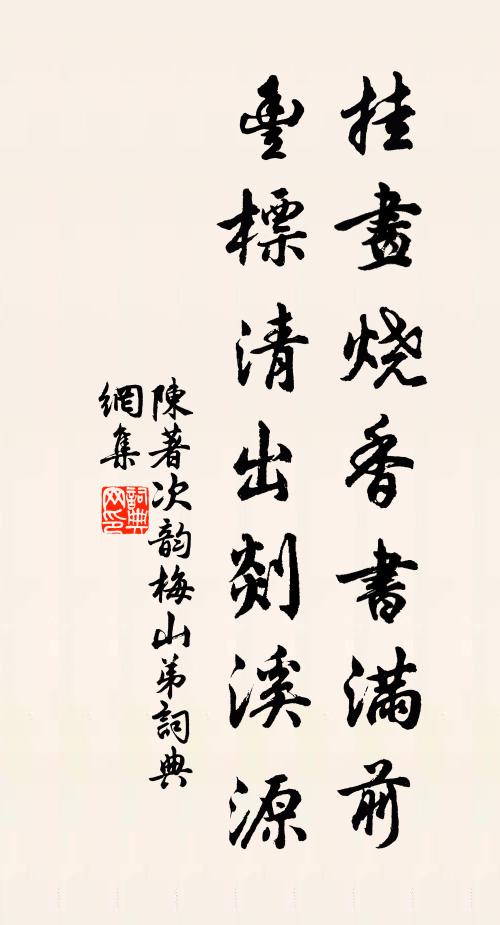 挂畫燒香書滿前
豐標清出剡溪源
陳著次韵梅山弟詞典
網集
詞典网印